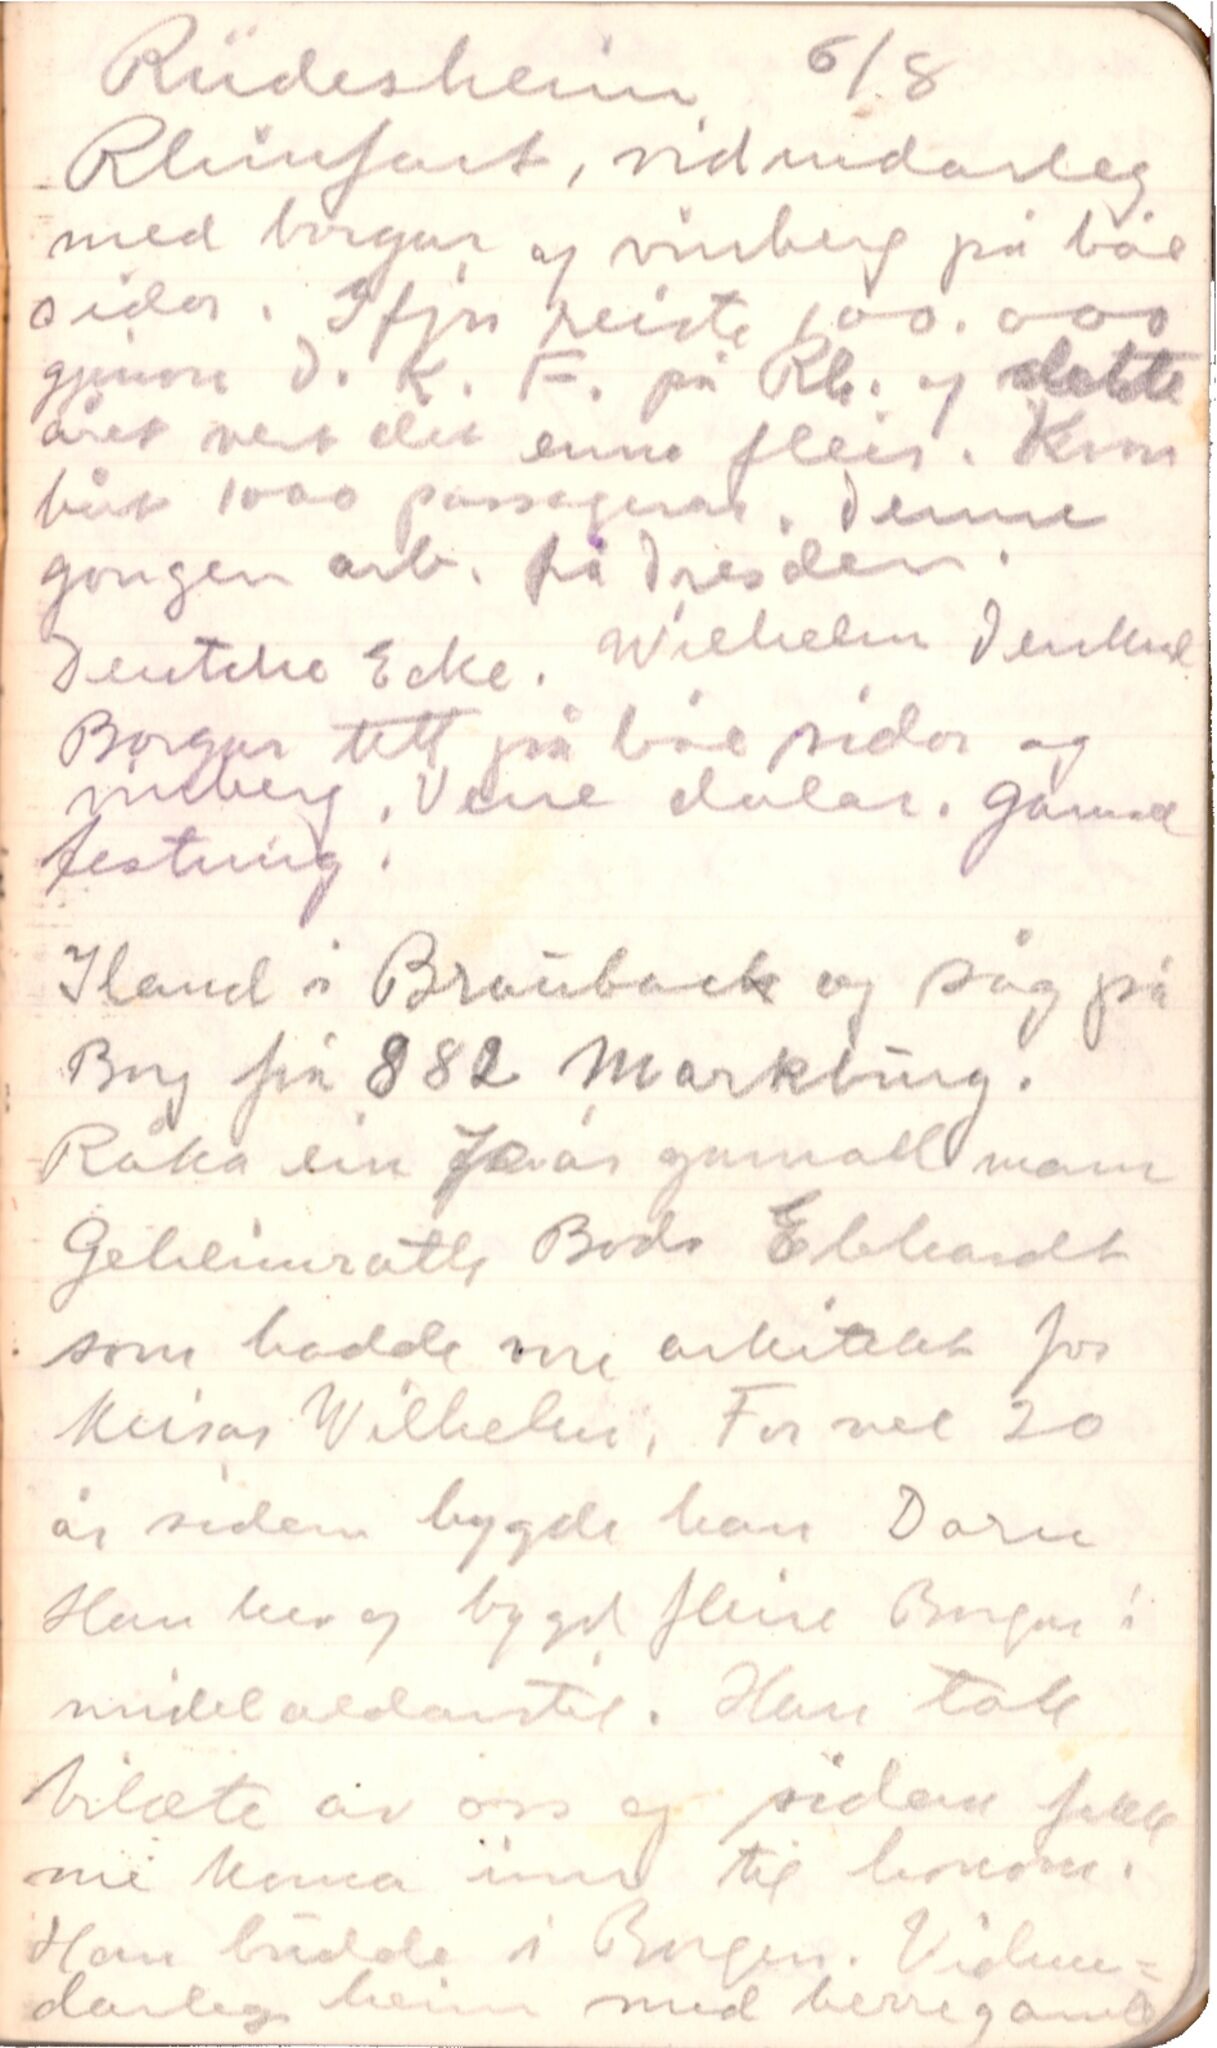 Rüdesheim 6/8
Rhinfart, vidundarleg
med borgar og vinberg på båe
sidor. Ifjor reiste 100.000
gjenom D. K. F. på Rh. og dette
året vert det enno fleir. Kvar
båt 1000 passagerar. Denne
gongen arb. frå Dresden.
Deutche Ecke. Wilhelm Denkmal
Borgar tett på båe sidor og
vinberg. Vene dalar. Gamal
festning.
Iland i Braubach og såg på
Borg frå 882 Markburg.
Råka ein år gamall mann
Geheimrath Bodo Ebhardt
som hadde vore arkitekt for
Keisar Wilhelm. For vel 20
år sidan bygde han Dorn
Han hev og bygd fleire Borgar i
midelaldarstil. Han tok
bilæte av oss og sidan fekk
me koma inn til honom.
Han budde i Borgen. Vidun=
darleg heim med berre gamle